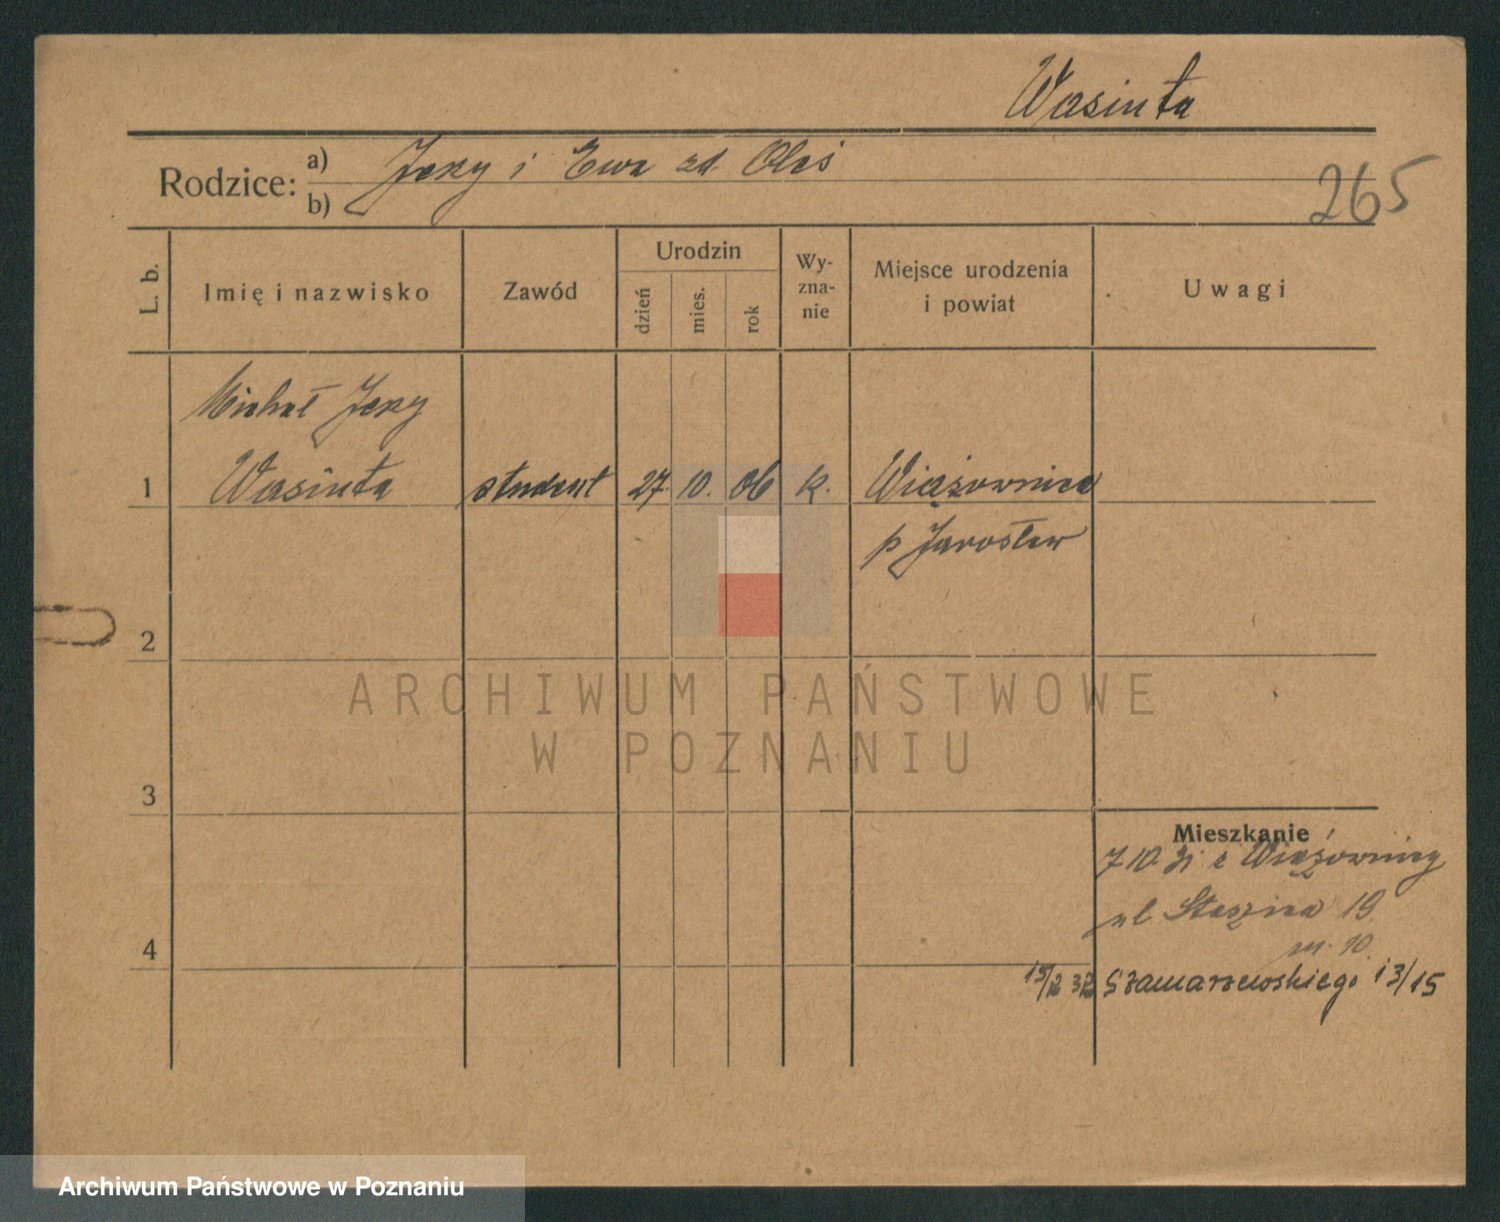 Wasiuta
Rodzice: a) Jerzy i Ewa zd. Oleś
b)
265
L. b.
Imię i nazwisko
Zawód
Urodzin
dzień
mies.
rok
Wy-
zna-
nie
Miejsce urodzenia
i powiat
Uwagi
Michał Jerzy
1 Wasiuta student 27. 10. 06 k. Wiązownica
p Jarosław
2
ARCHIWUM PAŃSTWOWE
W POZNANIU
3
Mieszkanie
7 10 31 z Wiązownicy
ul Staszica 19
4
m. 10.
15/2 32 Szamarzewskiego 13/15
Archiwum Państwowe w Poznaniu